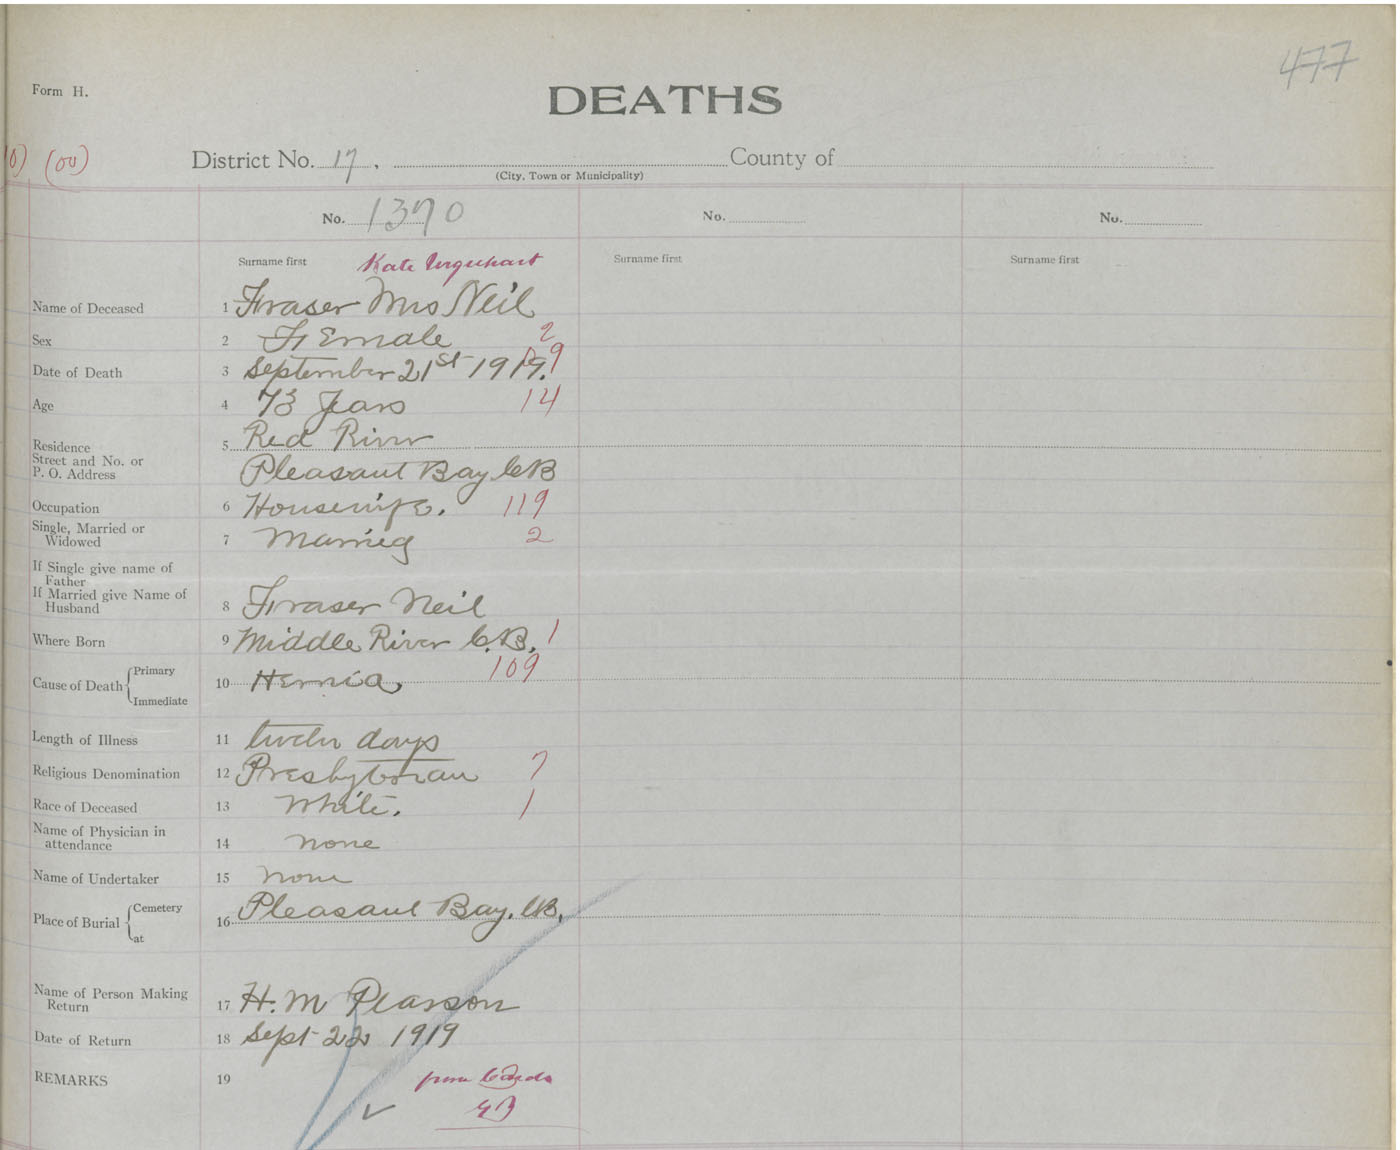 477
Form H.
DEATHS
0) (00)
District No. 17, County of
(City, Town or Municipality)
No. 1370 No. No.
Surname first Kate Urquhart Surname first Surname first
Name of Deceased 1 Fraser Mrs Neil
Sex 2 Female 2
Date of Death 3 September 21st 1919. 9
Age 4 73 Years 14
Residence 5 Red River
Street and No. or
P. O. Address Pleasant Bay C.B
Occupation 6 Housewife. 119
Single, Married or
Widowed 7 Married 2
If Single give name of
Father
If Married give Name of
Husband 8 Fraser Neil
Where Born 9 Middle River C.B. 1
Cause of Death Primary 10 Hernia, 109
Immediate
Length of Illness 11 twelv days
Religious Denomination 12 Presbyterian 7
Race of Deceased 13 White. 1
Name of Physician in
attendance 14 none
Name of Undertaker 15 none
Place of Burial Cemetery 16 Pleasant Bay. CB.
at
Name of Person Making
Return 17 H. M Pearson
Date of Return 18 Sept 22 1919
REMARKS 19 from Cards